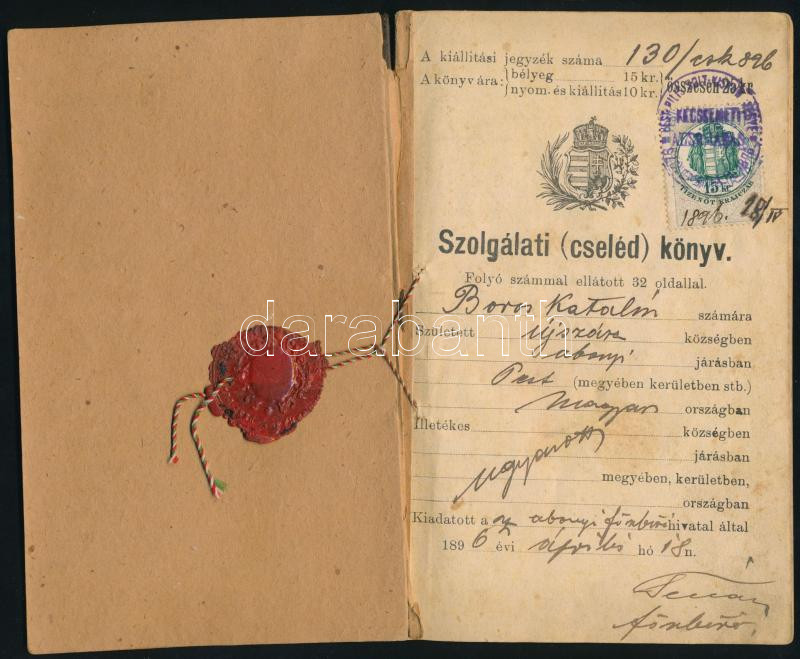 A kiállitási jegyzék száma 130/csk 896
A könyv ára: bélyeg 15 kr. összesen 25 kr.
nyom. és kiállítás 10 kr.
KECSKEMÉTI
15 kr.
TIZENÖT KRAJCZÁR
1896. 28/IV
Szolgálati (cseléd) könyv.
Folyó számmal ellátott 32 oldallal.
Boros Katalin számára
Született Újszász községben
abonyi járásban
Pest (megyében kerületben stb.)
Magyar országban
Illetékes községben
ugyanott járásban
megyében, kerületben,
országban
Kiadatott a z abonyi főbírói hivatal által
1896 évi április hó 18n.
főbíró
darabanth